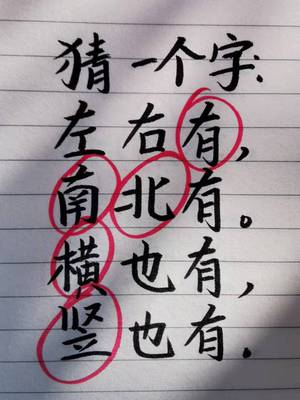 猜一个字:
左右有,
南北有。
横也有,
竖也有.